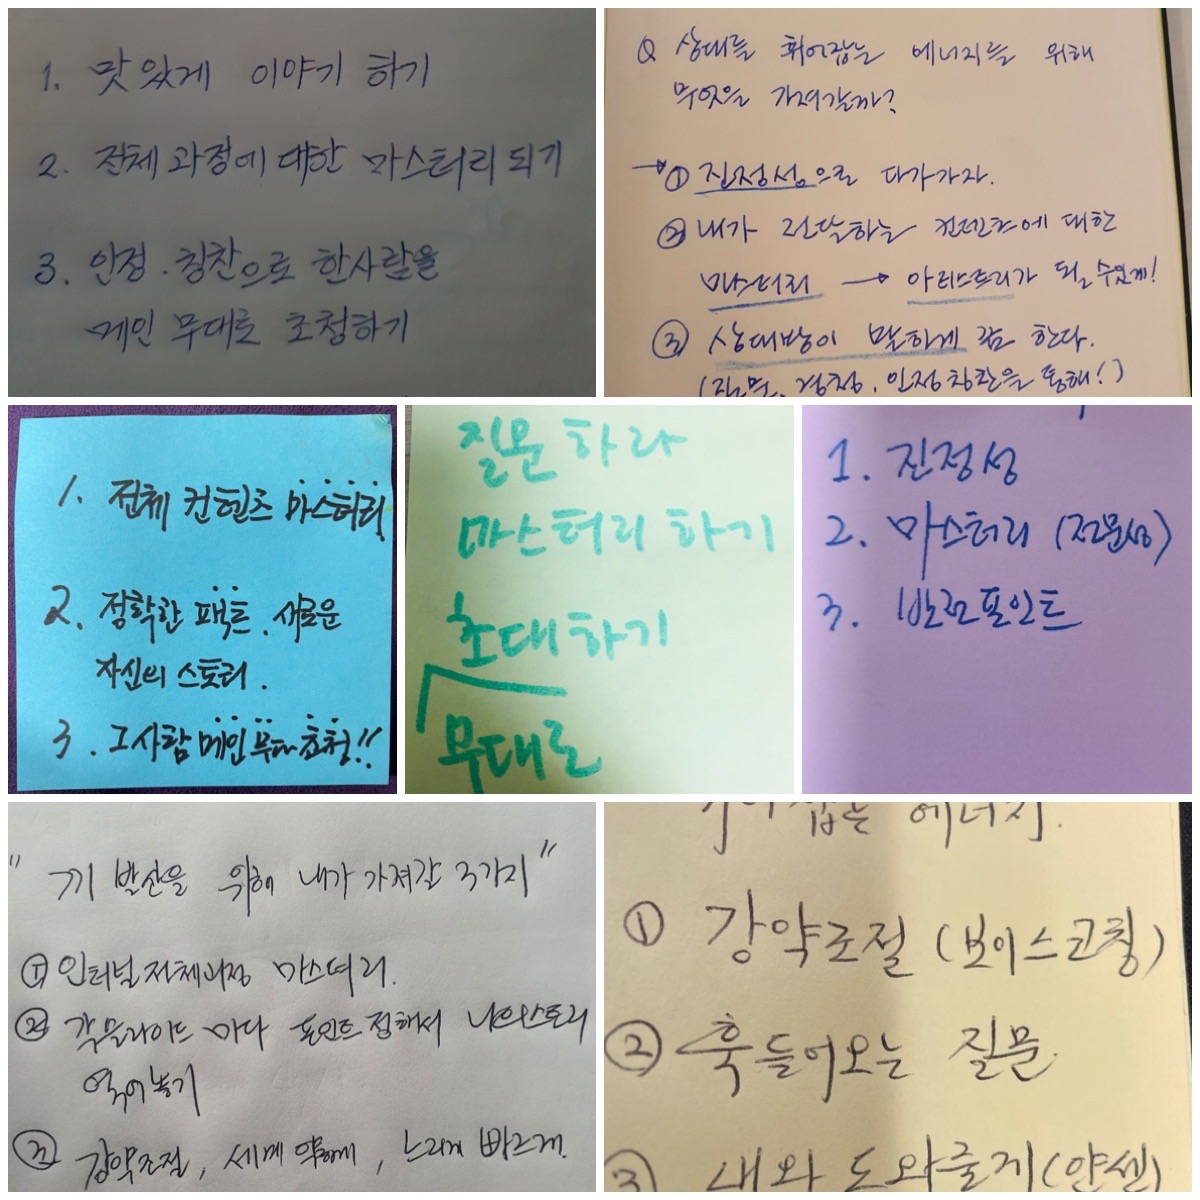 1. 맛있게 이야기 하기
2. 전체 과정에 대한 마스터리 되기
3. 인정. 칭찬으로 한사람을
메인 무대로 초청하기
Q 상대를 휘어잡는 에너지를 위해
무엇을 가져갈까?
→① 진정성으로 다가가자.
② 내가 전달하는 컨텐츠에 대한
마스터리 → 아티스트리가 될 수있게!
③ 상대방이 말하게 끔 한다.
(질문, 경청, 인정칭찬을 통해!)
1. 전체 컨텐츠 마스터리
2. 정확한 팩트. 새로운
자신의 스토리.
3. 그사람 메인 무대 초청!!
질문하라
마스터리 하기
초대하기
무대로
1. 진정성
2. 마스터리 (전문성)
3. 반전포인트
" 끼 발산을 위해 내가 가져갈 3가지 "
① 인터널 전체과정 마스터리.
② 각 슬라이드 마다 포인트 정해서 나의 스토리
엮어놓기
③ 강약조절, 세게 약하게, 느리게 빠르게.
잡는 에너지.
① 강약조절 (보이스코칭)
② 훅 들어오는 질문
③ 내와 도와줄게 (얀센)